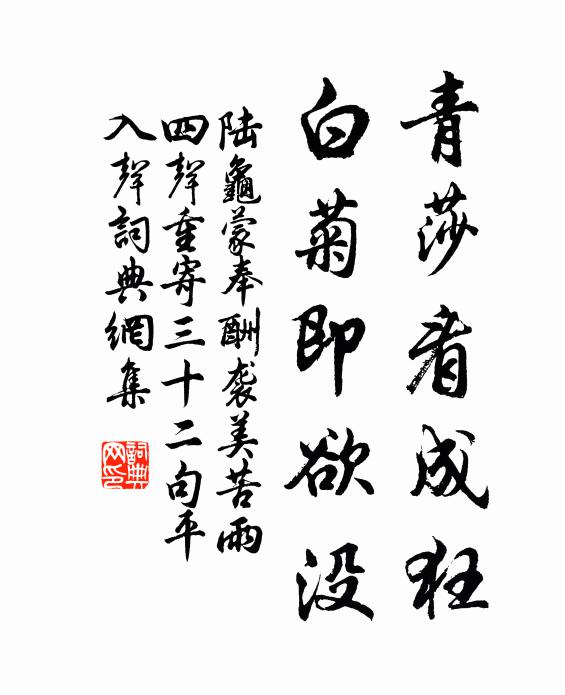 青莎看成狂
白菊即欲没
陆龜蒙奉酬袭美苦雨
四聲重寄三十二句平
入聲詞典網集
詞典
网印